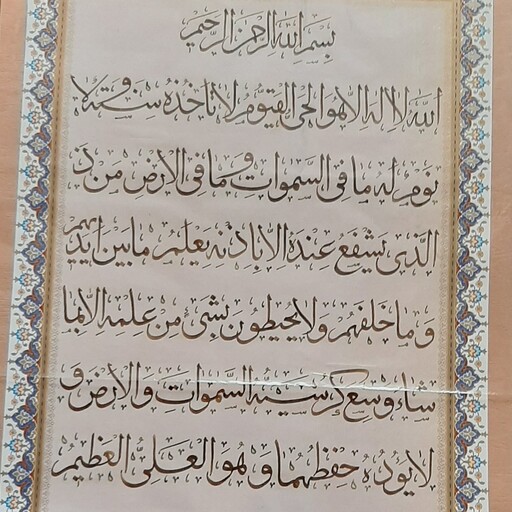 بسم الله الرحمن الرحيم
الله لا اله الا هو الحي القيوم لا تأخذه سنة و لا
نوم له ما في السموات و ما في الارض من ذ
الذي يشفع عنده الا باذنه يعلم ما بين ايديهم
و ما خلفهم و لا يحيطون بشئ من علمه الا بما
شاء وسع كرسيه السموات و الارض و
لا يؤده حفظهما و هو العلي العظيم